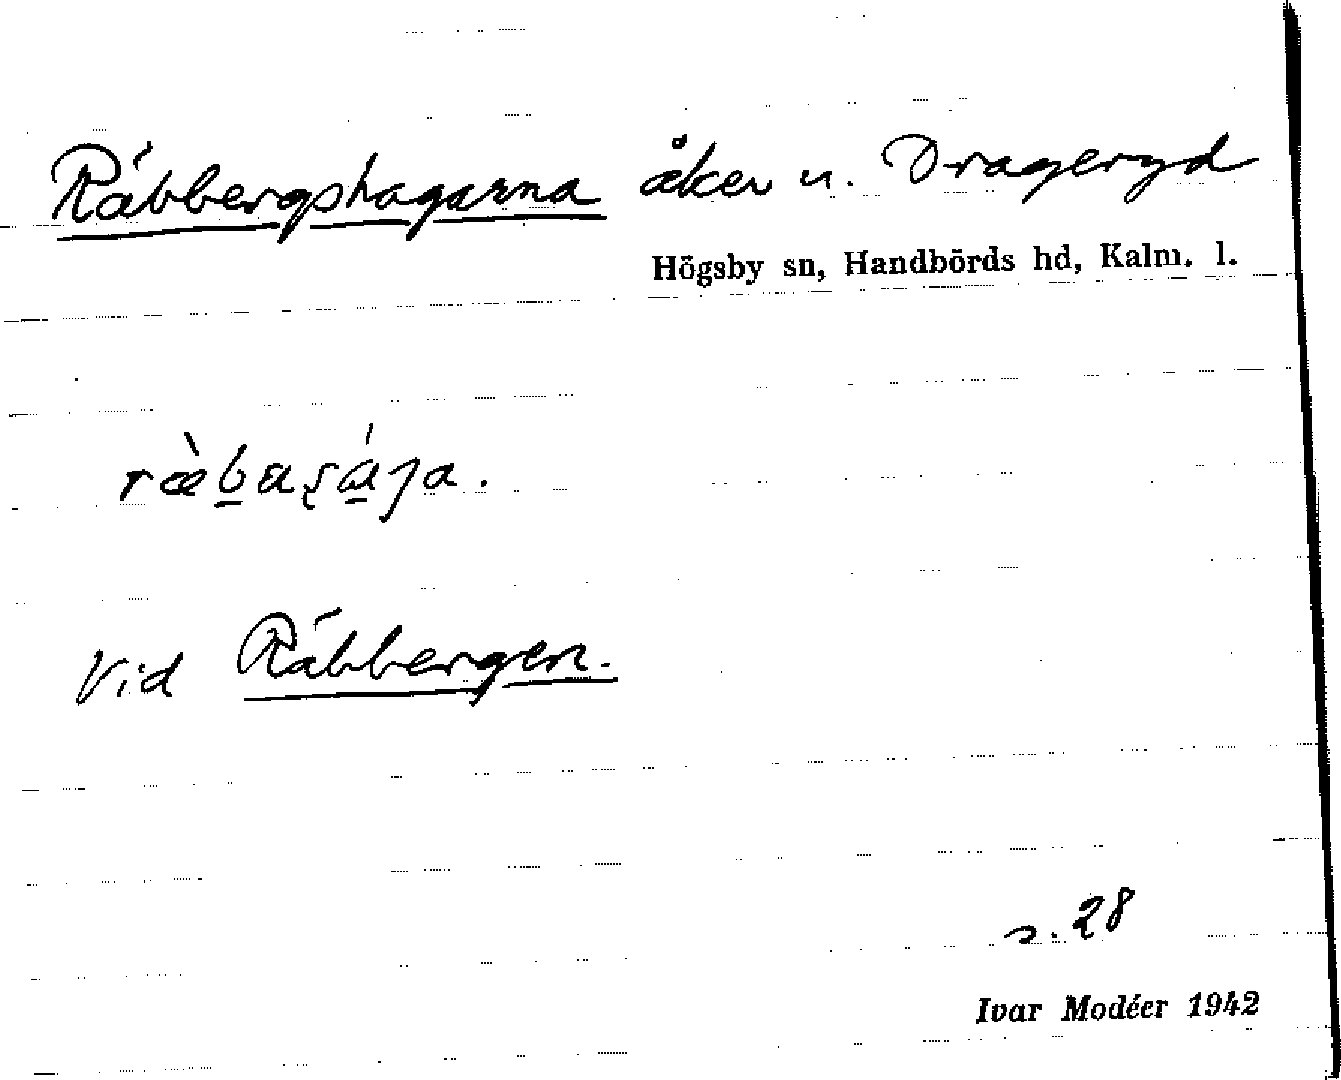 Räbbergshagarna åker u. Drageryd
Högsby sn, Handbörds hd, Kalm. l.
Vid Räbbergen.
s. 28
Ivar Modéer 1942